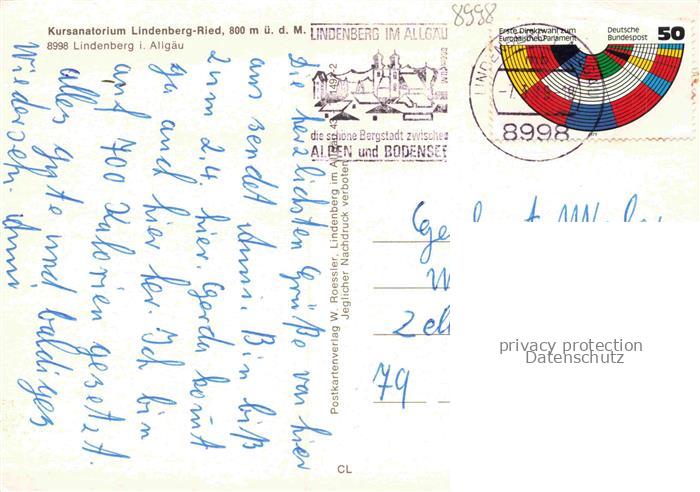 Kursanatorium Lindenberg-Ried, 800 m ü. d. M.
8998 Lindenberg i. Allgäu
8998
LINDENBERG IM ALLGÄU
die schöne Bergstadt zwischen
ALPEN und BODENSEE
8998
Erste Direktwahl zum
Europäischen Parlament
Deutsche
Bundespost
50
Die herzlichsten Grüße von hier
aus sendet Anni. Bin biß
zum 2.4. hier. Gerda komt
ja auch hier her. Ich bin
auf 700 Kalorien gesetzt.
alles gute und baldiges
Wiederseh. Anni
Postkartenverlag W. Roessler, Lindenberg im Allgäu
Jeglicher Nachdruck verboten
79
CL
privacy protection
Datenschutz